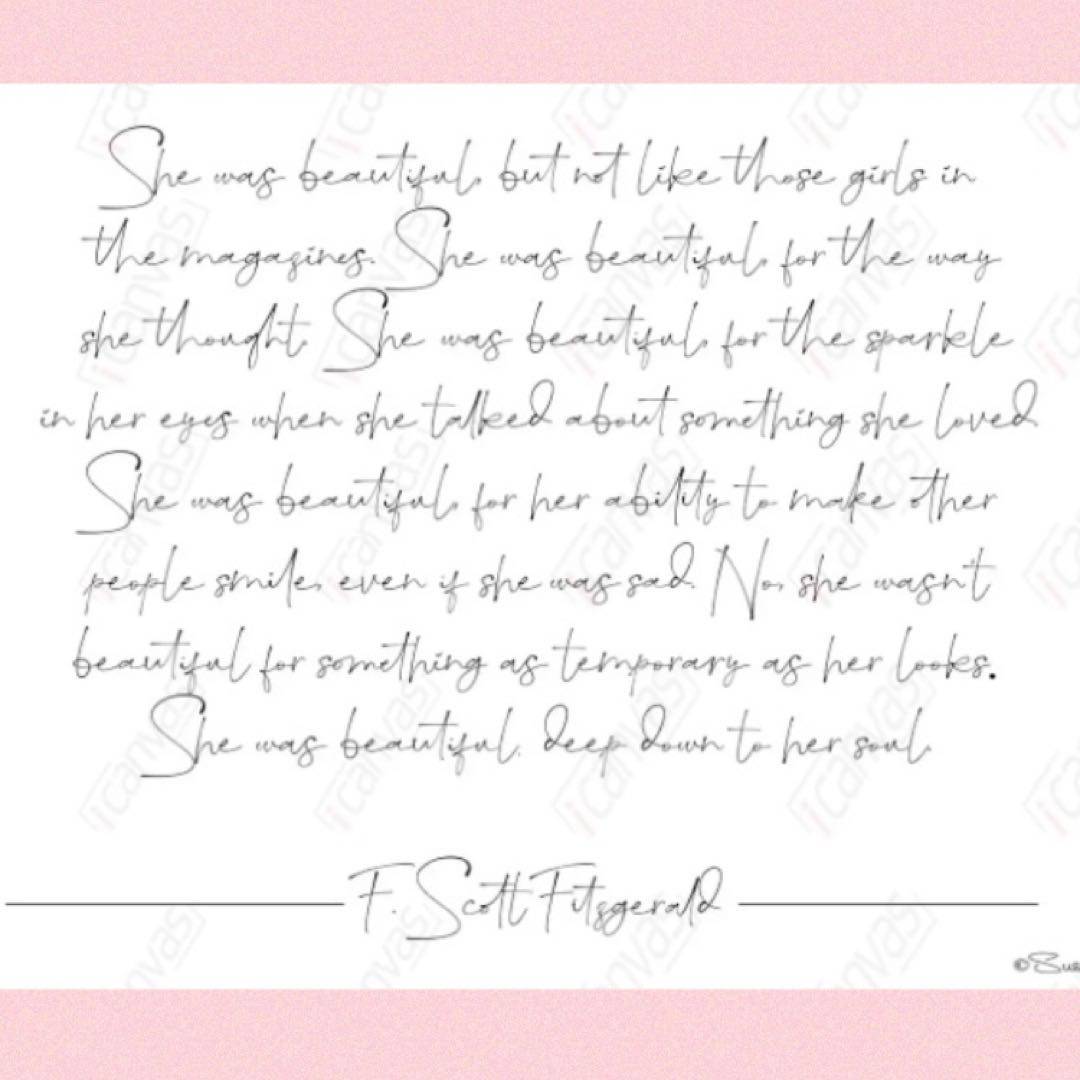 She was beautiful, but not like those girls in
the magazines. She was beautiful, for the way
she thought. She was beautiful, for the sparkle
in her eyes when she talked about something she loved.
She was beautiful, for her ability to make other
people smile, even if she was sad. No, she wasn't
beautiful for something as temporary as her looks.
She was beautiful, deep down to her soul.
F. Scott Fitzgerald
icanvas